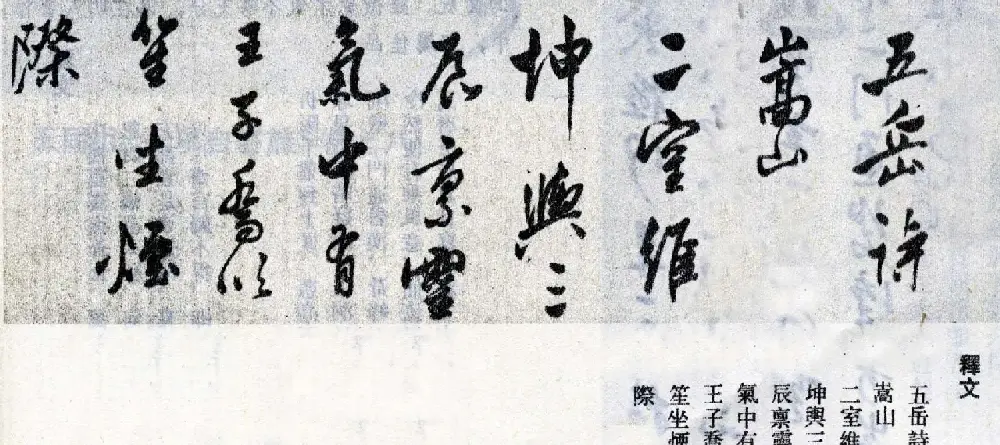 五岳詩
嵩山
二室維
坤輿三
辰稟靈
氣中有
王子喬以
笙坐煙
際
釋文
五岳詩
嵩山
二室維
坤輿三
辰稟靈
氣中有
王子喬
笙坐煙
際